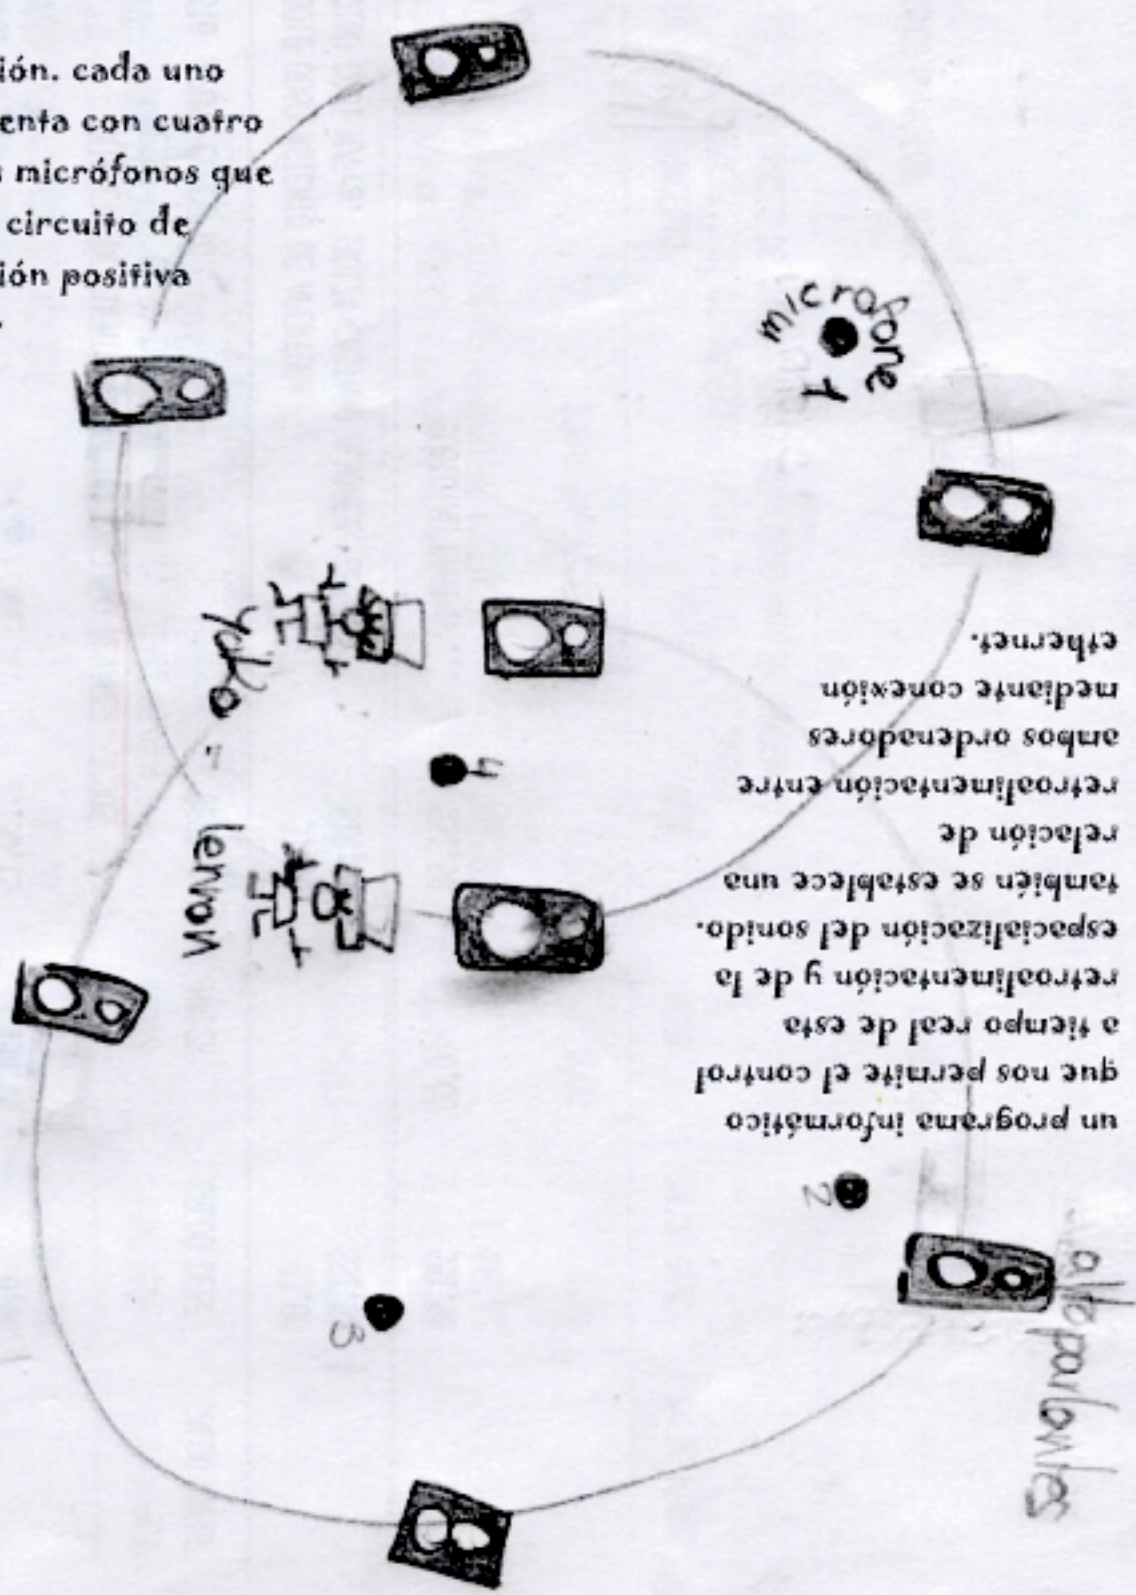 ión. cada uno
enta con cuatro
s micrófonos que
circuito de
ión positiva
microfone
1
yuko =
4
lervon
un programa informático
que nos permite el control
a tiempo real de esta
retroalimentación y de la
espacialización del sonido.
también se establece una
relación de
retroalimentación entre
ambos ordenadores
mediante conexión
ethernet.
2
3
altoparlantes